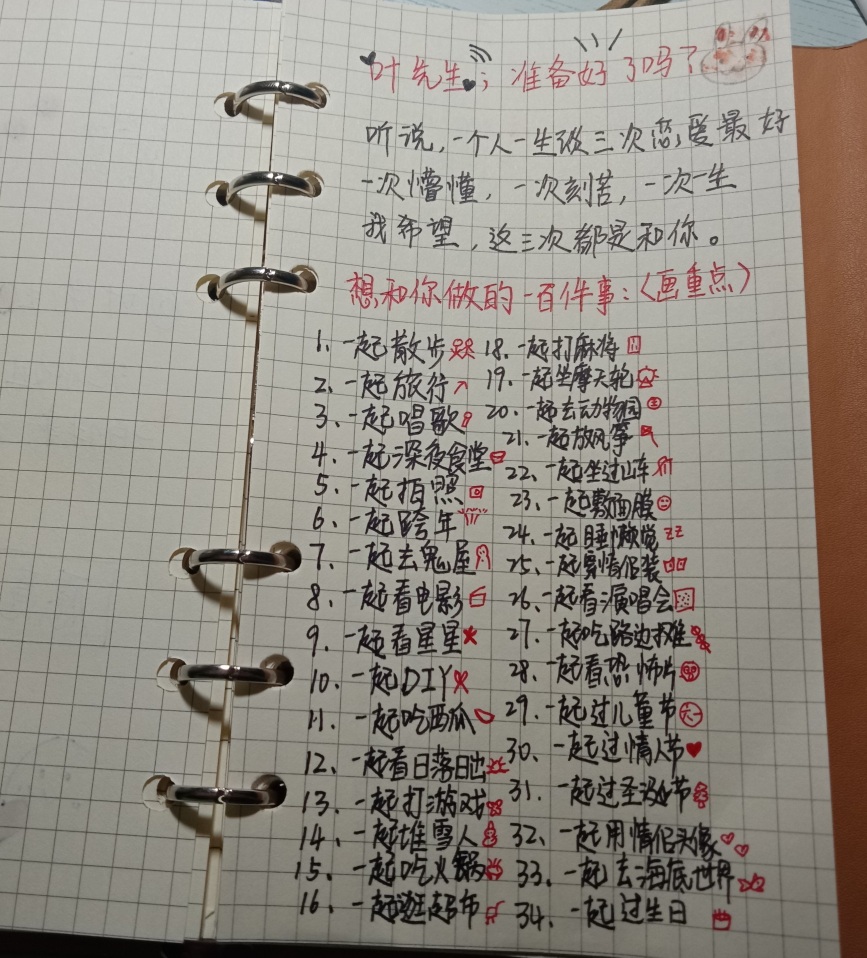 叶先生；准备好了吗？
听说，一个人一生谈三次恋爱最好
一次懵懂，一次刻苦，一次一生
我希望，这三次都是和你。
想和你做的一百件事：〈画重点〉
1、一起散步
2、一起旅行
3、一起唱歌
4、一起深夜食堂
5、一起拍照
6、一起跨年
7、一起去鬼屋
8、一起看电影
9、一起看星星
10、一起DIY
11、一起吃西瓜
12、一起看日落日出
13、一起打游戏
14、一起堆雪人
15、一起吃火锅
16、一起逛超市
18、一起打麻将
19、一起坐摩天轮
20、一起去动物园
21、一起放风筝
22、一起坐过山车
23、一起敷面膜
24、一起睡懒觉
zz
25、一起穿情侣装
26、一起看演唱会
27、一起吃路边摊
28、一起看恐怖片
29、一起过儿童节
30、一起过情人节
31、一起过圣诞节
32、一起用情侣头像
33、一起去海底世界
34、一起过生日